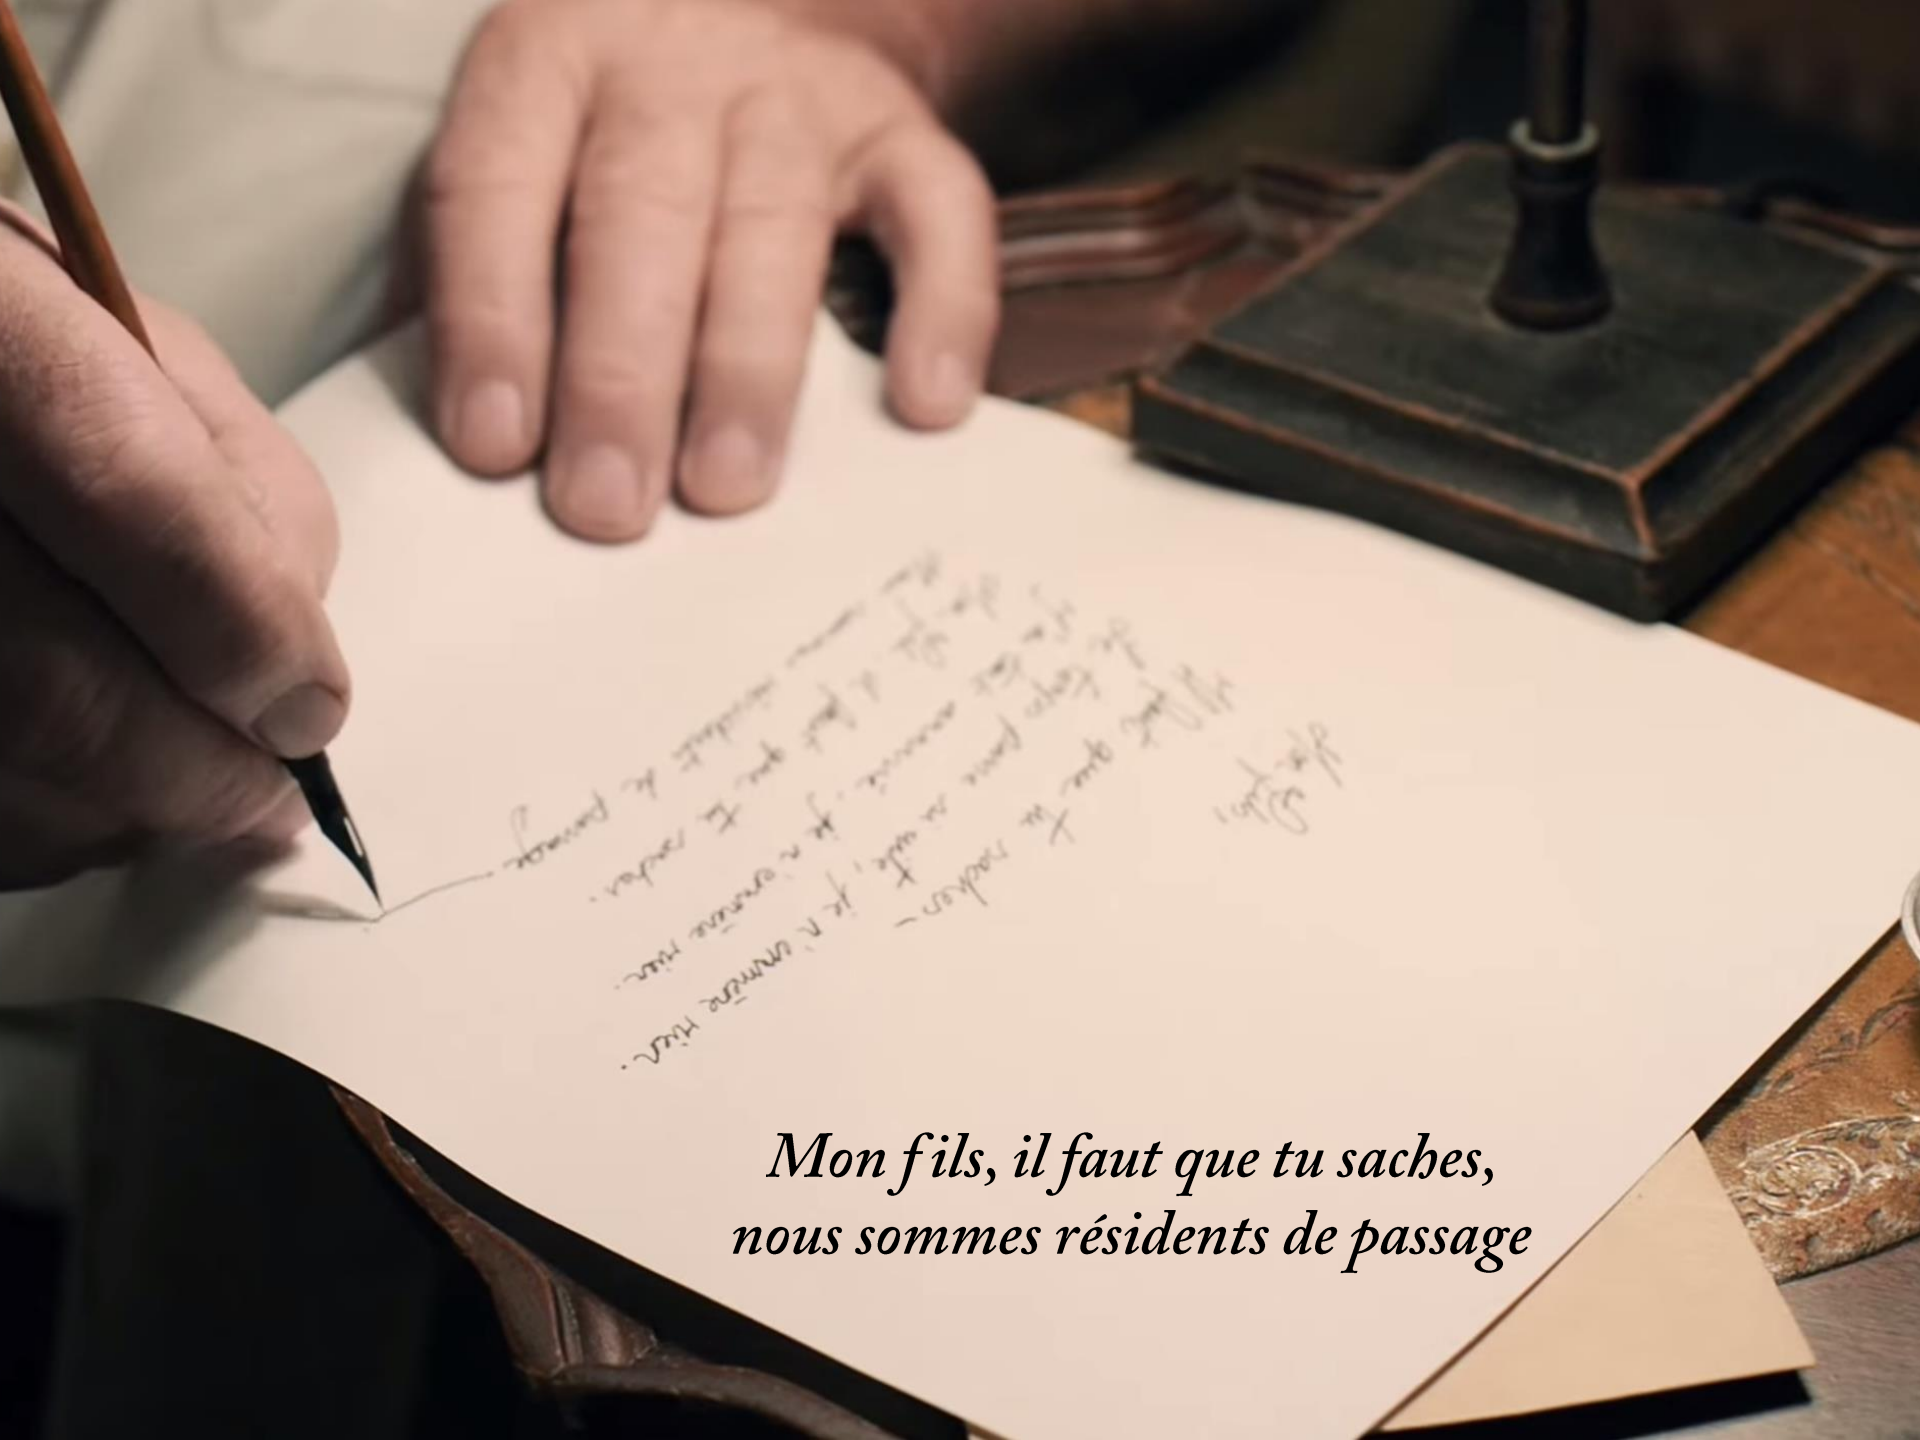 Mon fils,
Il faut que tu saches –
temps passe si vite, je n'emmène rien.
tout je n'emmène rien.
Mon fils il faut que tu saches.
Nous sommes résidents de passage
Mon fils, il faut que tu saches,
nous sommes résidents de passage